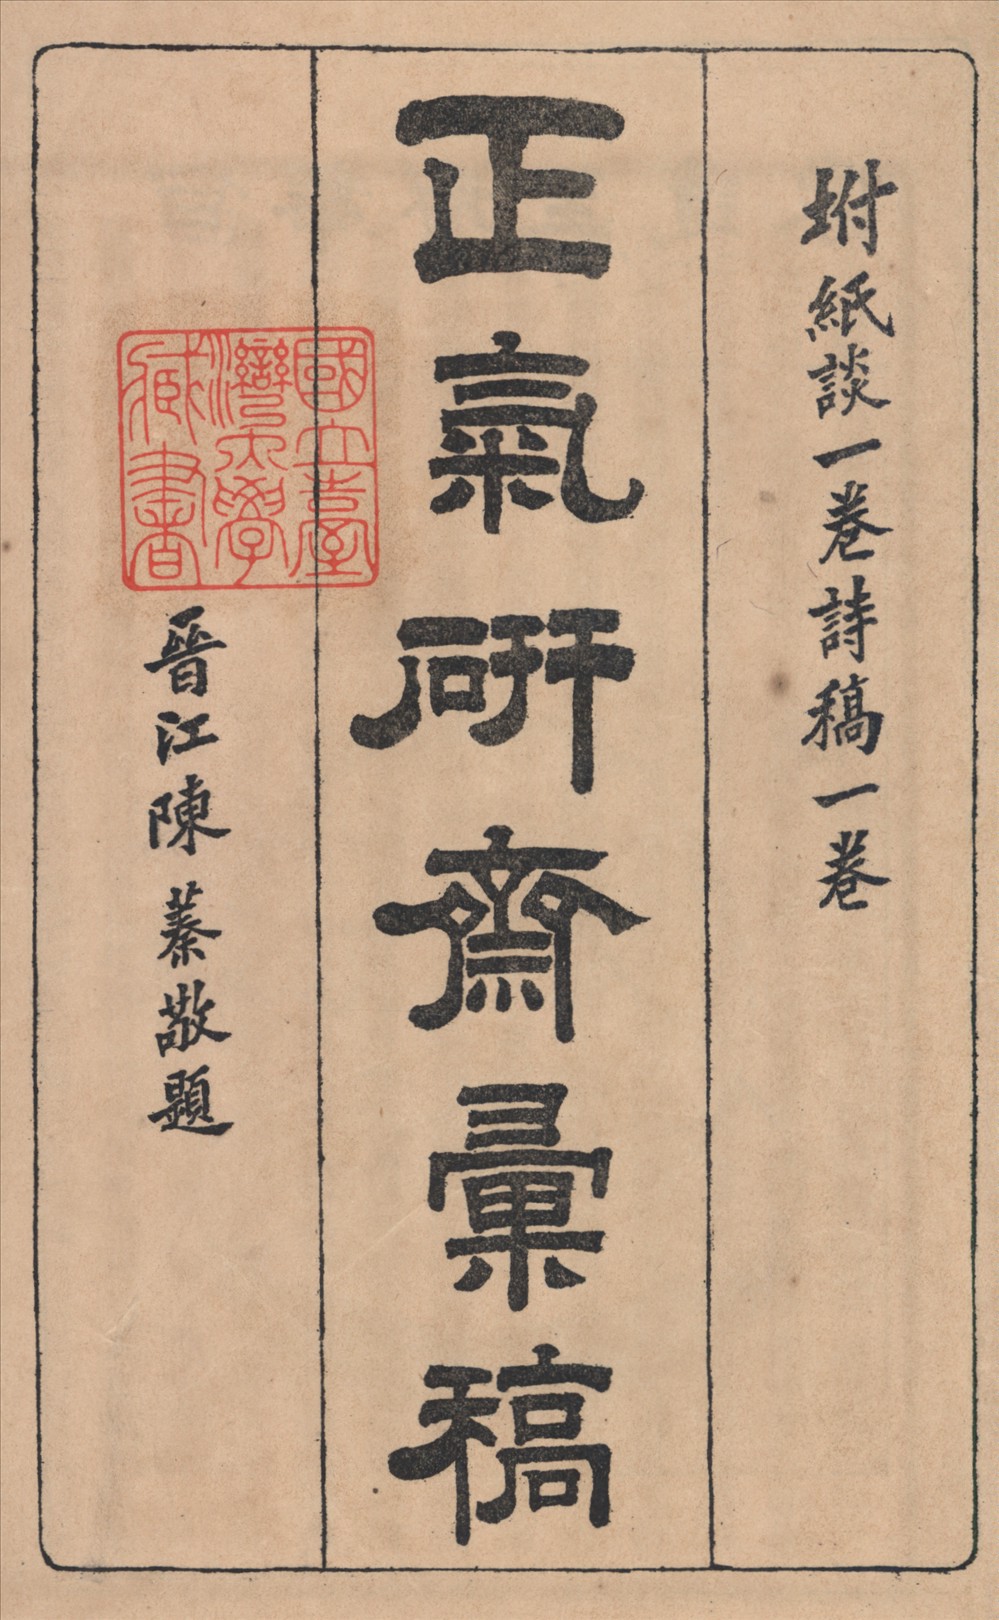 坿紙談一卷詩稿一卷
正氣硏齋彙稿
晉江陳蓁敬題
國立臺
灣大學
藏書